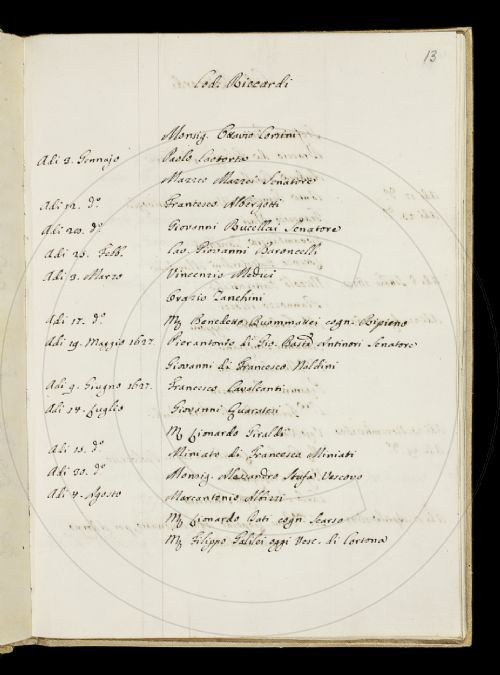 13
Cod: Riccardi
Monsig. Ottavio Corsini
Adi 8. Gennajo Paolo Laotorto
Mazzeo Mazzei Senatore
Adi 12. d.° Francesco Albergotti
Adi 20. d.° Giovanni Rucellai Senatore
Adi 25. Febb. Cav. Giovanni Baroncelli
Adi 3. Marzo Vincenzio Medici
Orazio Zanchini
Adi 17. d.° Mg Benedetto Buommattei cogn. Ripieno
Adi 19. Maggio 1627. Pierantonio di Gio. Batta Antinori Senatore
Giovanni di Francesco Naldini
Adi 9. Giugno 1627. Francesco Cavalcanti
Adi 14. Luglio Giovanni Quaratesi
Mg Lionardo Giraldi
Adi 15. d.° Miniato di Francesco Miniati
Adi 20. d.° Monsig. Alessandro Stufa Vescovo
Adi 4. Agosto Marcantonio Albizzi
Mg Lionardo Dati cogn. Scarso
Mg Filippo Galilei oggi Vesc. di Cortona